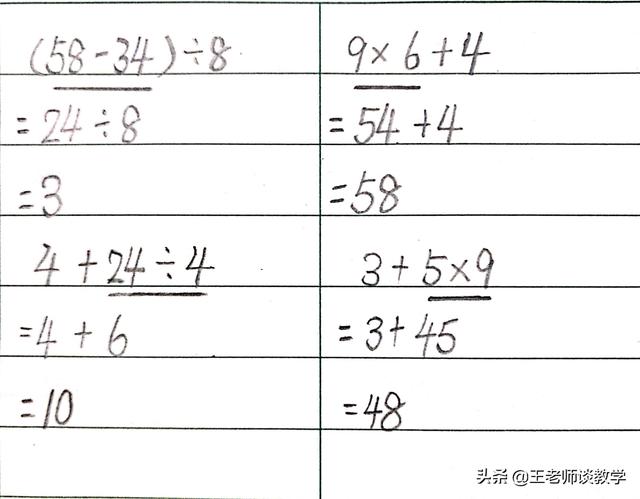 (58-34)÷8
=24÷8
=3
9×6+4
=54+4
=58
4+24÷4
=4+6
=10
3+5×9
=3+45
=48
头条 @王老师谈教学